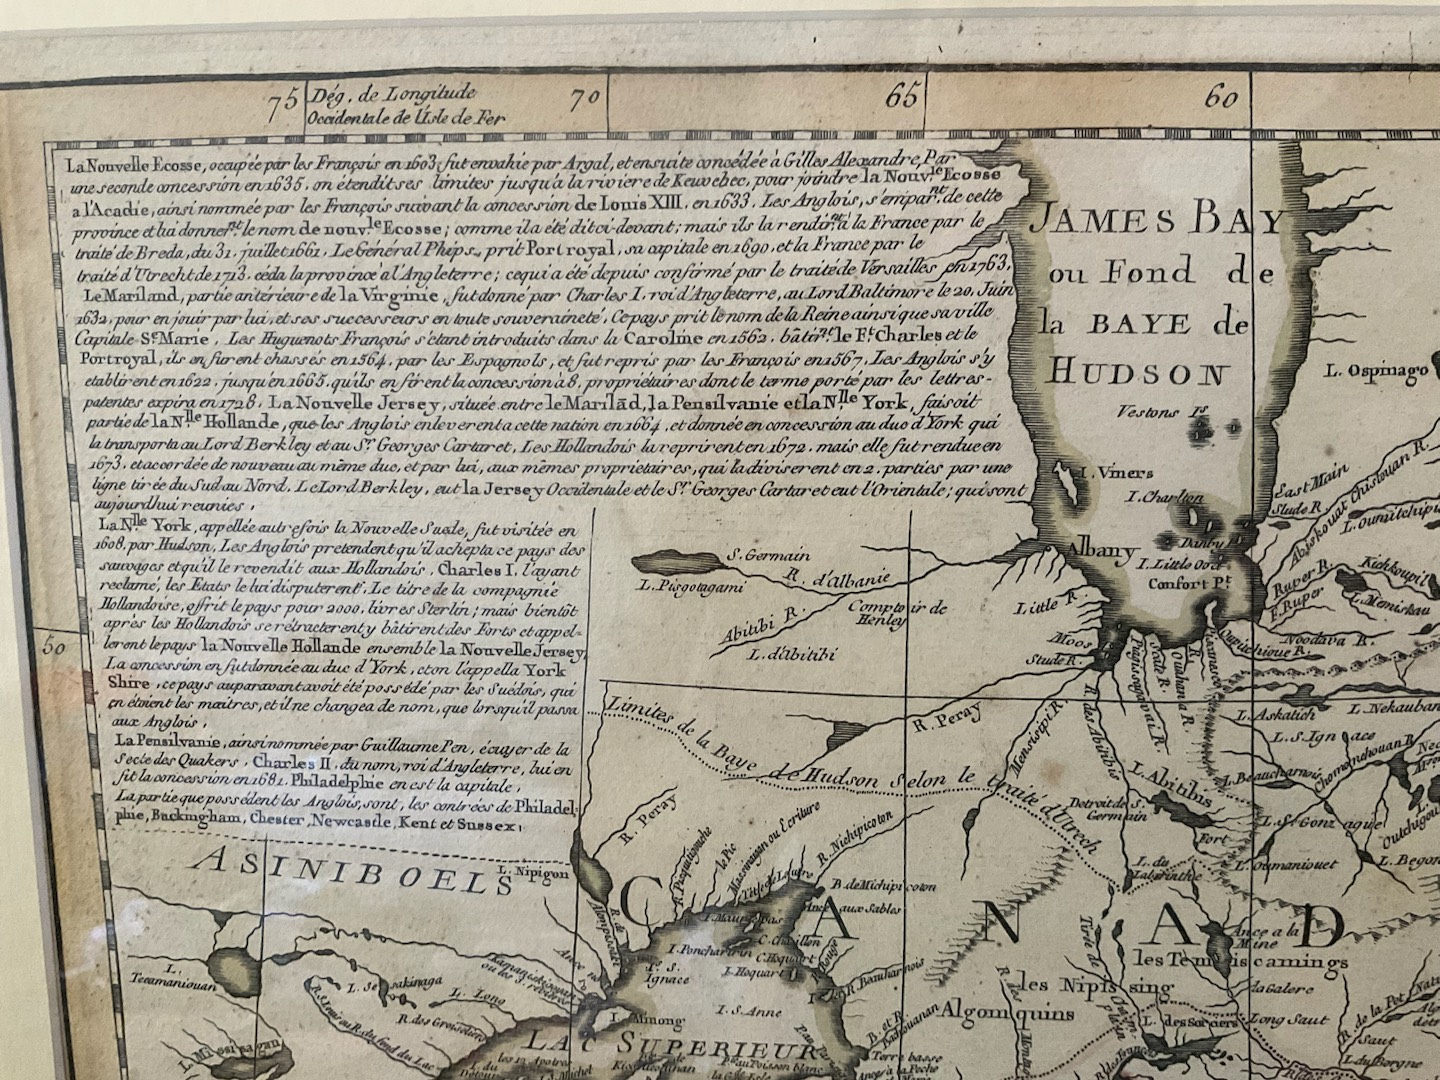 75 Dég. de Longitude 70 65 60
Occidentale de l'Isle de Fer
La Nouvelle Ecosse, occupée par les François en 1603, fut envahie par Argal, et ensuite concédée à Gilles Alexandre, Par
une seconde concession en 1635, on étendit ses limites jusqu'à la riviere de Keuvebec, pour joindre la Nouv.le Ecosse
a l'Acadie, ainsi nommée par les François suivant la concession de Louis XIII. en 1633. Les Anglois, s'empar.nt de cette
province et lui donner.nt le nom de nouv.le Ecosse; comme il a été dit ci-devant; mais ils la rendir.nt à la France par le
traité de Breda, du 31. juillet 1661. Le Général Phips, prit Port royal, sa capitale en 1690, et la France par le
traité d'Utrecht de 1713. céda la province à l'Angleterre; ce qui a été depuis confirmé par le traité de Versailles en 1763.
Le Mariland, partie antérieure de la Virginie, fut donné par Charles I. roi d'Angleterre, au Lord Baltimore le 20. Juin
1632, pour en jouir par lui, et ses successeurs en toute souveraineté. Ce pays prit le nom de la Reine ainsi que sa ville
Capitale S.te Marie. Les Huguenots François s'étant introduits dans la Caroline en 1562. bâtir.nt le F.t Charles et le
Portroyal, ils en furent chassés en 1564. par les Espagnols, et fut repris par les François en 1567. Les Anglois s'y
etablirent en 1622. jusqu'en 1665. qu'ils en firent la concession à 8. propriétaires dont le terme porté par les lettres-
patentes expira en 1728. La Nouvelle Jersey, située entre le Marilād, la Pensilvanie et la N.lle York, faisoit
partie de la N.lle Hollande, que les Anglois enleverent a cette nation en 1664. et donnée en concession au duc d'York qui
la transporta au Lord Berkley et au S.r Georges Cartaret. Les Hollandois la reprirent en 1672. mais elle fut rendue en
1673. et accordée de nouveau au même duc, et par lui, aux mêmes propriétaires, qui la diviserent en 2. parties par une
ligne tirée du Sud au Nord. Le Lord Berkley, eut la Jersey Occidentale et le S.r Georges Cartaret eut l'Orientale; qui sont
aujourdhui reunies.
La N.lle York, appellée autrefois la Nouvelle Suede, fut visitée en
1608. par Hudson, Les Anglois pretendent qu'il achepta ce pays des
sauvages et qu'il le revendit aux Hollandois. Charles I. l'ayant
reclamé, les Etats le lui disputerent. Le titre de la compagnie
Hollandoise, offrit le pays pour 2000. livres Sterlin; mais bientôt
après les Hollandois se rétracterent y bâtirent des Forts et appel-
lerent le pays la Nouvelle Hollande ensemble la Nouvelle Jersey
La concession en fut donnée au duc d'York, et on l'appella York
Shire, ce pays auparavant avoit été possédé par les Suédois, qui
en étoient les maitres, et il ne changea de nom, que lorsqu'il passa
aux Anglois.
La Pensilvanie, ainsi nommée par Guillaume Pen, écuyer de la
Secte des Quakers. Charles II. du nom, roi d'Angleterre, lui en
fit la concession en 1681. Philadelphie en est la capitale,
La partie que possédent les Anglois, sont, les contrées de Philadel-
phie, Buckingham, Chester, Newcastle, Kent et Sussex.
50
JAMES BAY
ou Fond de
la BAYE de
HUDSON
L. Ospinago
Vestons I.s
I. Viners
I. Charlton
East Main
Slude R.
Abiskouat Chistouan R.
L. Oumitchipi
Danby I.
Albany
I. Little Ood
Confort P.t
Ruper R.
F. Ruper
Kichkoupil
L. Memiskau
S. Germain
L. Pisgotagami
R. d'Albanie
Comptoir de
Henley
Abitibi R.
L. d'Abitibi
Little R.
Moos
Stude R.
Noodava R.
Ouitchigue R.
Ouahana R.
L. Askatich
L. Nekauban
L. S. Ignace
L. Beaucharnois
Chomonchouan R.
R. Peray
Mensisipi R.
R. des Abitibis
Limites de la Baye de Hudson Selon le traité d'Utrech
L. Abitibis
Detroit de S.
Germain
Fort
L. S. Gonzague
L. Oumaniouet
Outchigou
L. Begon
L. du
Labirinthe
R. Peray
ASINIBOELS
L. Nipigon
R. Picquitigouche
le Pic
Massinaigan ou Ecriture
R. Nichipicoton
B. de Michipicoton
Ance aux Sables
CANAD
I. Maurepas
C. Chaillon
I. Ponchartrin
C. Hoquart
I. Hoquart
F. S.
Ignace
I. S. Anne
I. Minong
R. Beauharnois
Ance a la
Mine
les Temiscamings
les Nipissing
Algomquins
da Galere
L. des Sorciers
Long Saut
Saut
L. du Borgne
L.
Tecamaniouan
L. Sesakinaga
L. Long
R. des Groiseliers
R. S. Louis ou R. du fond du Lac
L. Missisagan
LAC SUPERIEUR
les 12 Apotres
Terre basse
Ances à la Peche